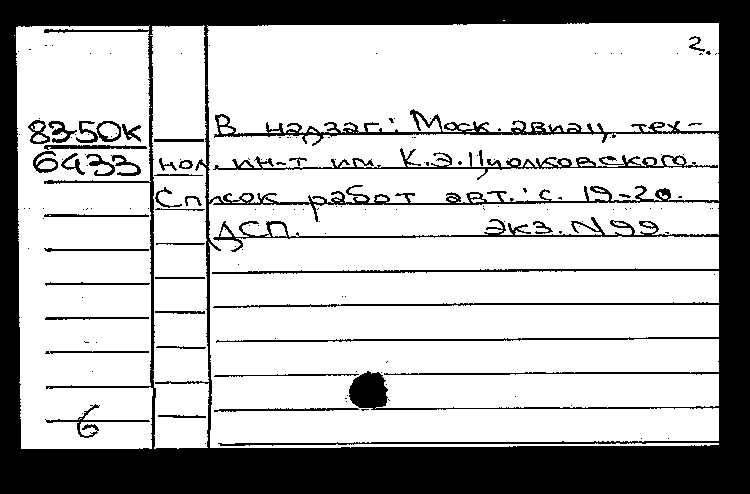 2.
83-50к
6433
В надзаг.: Моск. авиац. тех-
нол. ин-т им. К.Э.Циолковского.
Список работ авт.: с. 19-20.
ДСП. Экз. N 99.
6